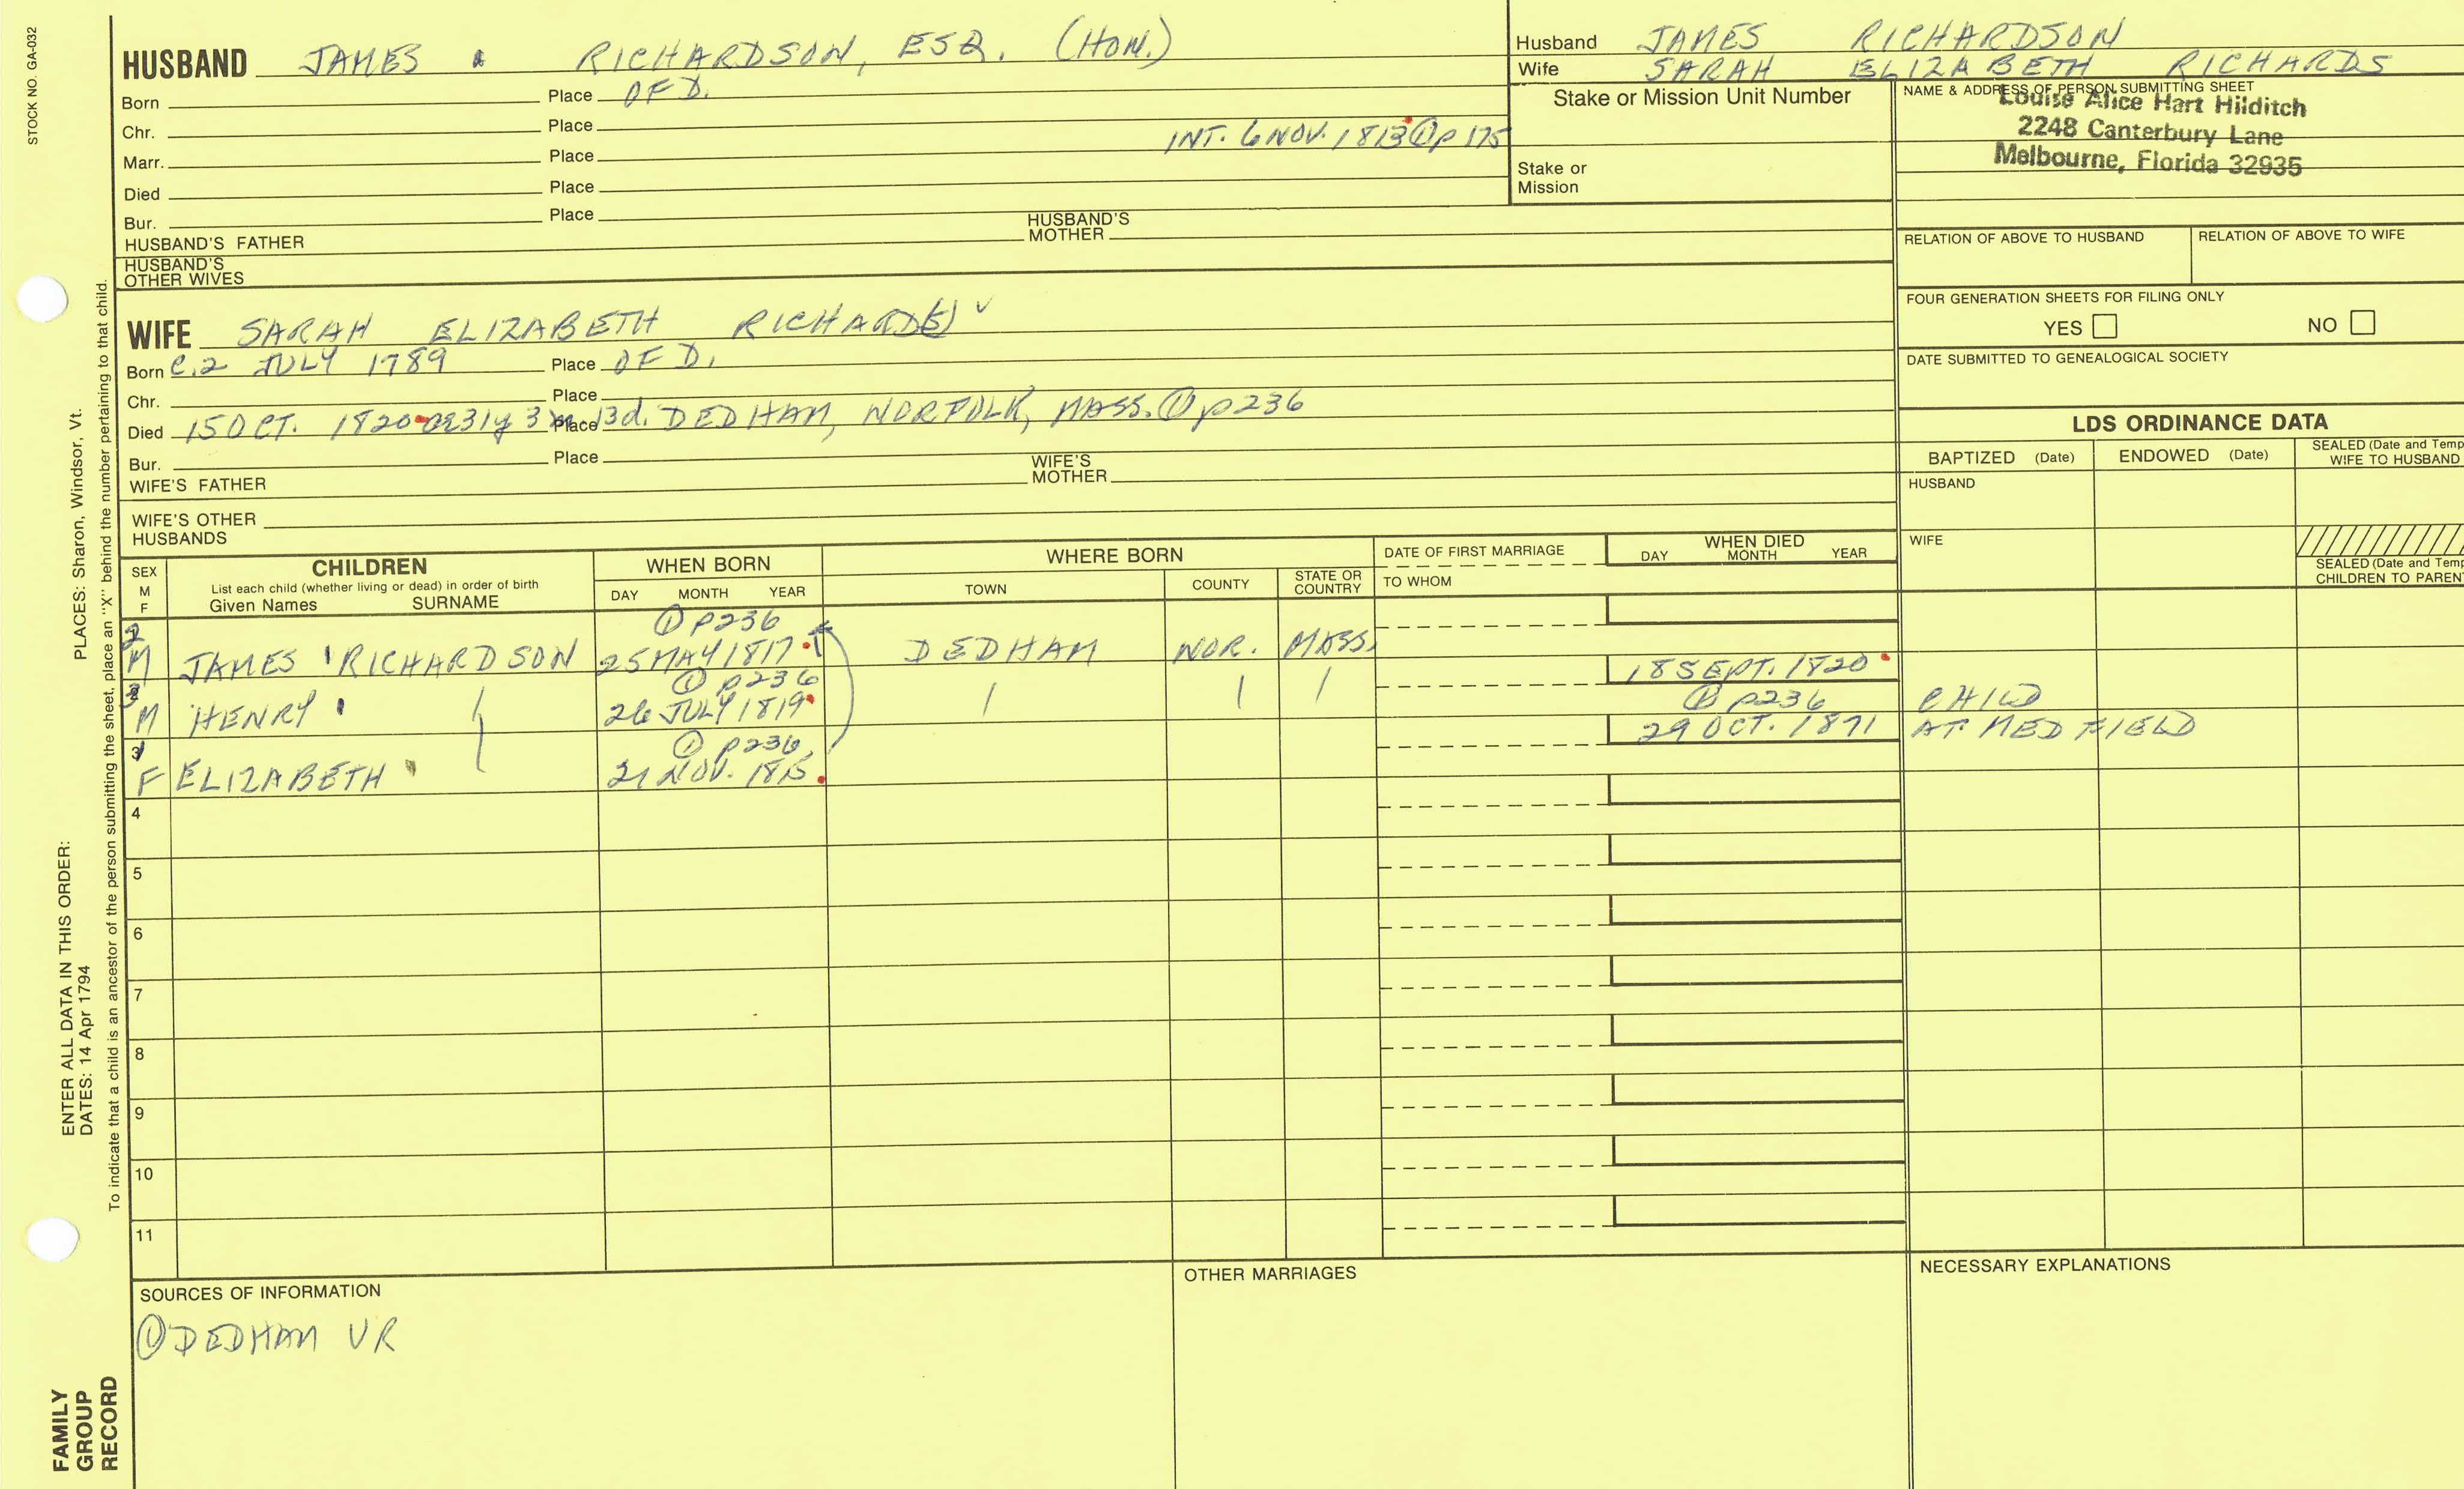 STOCK NO. GA-032
HUSBAND JAMES RICHARDSON, ESQ. (HON.)
Born Place OF D.
Chr. Place
INT. 6 NOV. 1813 ① p 175
Marr. Place
Died Place
Bur. Place
HUSBAND'S FATHER HUSBAND'S MOTHER
HUSBAND'S OTHER WIVES
Husband JAMES RICHARDSON
Wife SARAH ELIZABETH RICHARDS
Stake or Mission Unit Number
Stake or Mission
NAME & ADDRESS OF PERSON SUBMITTING SHEET
Louise Alice Hart Hilditch
2248 Canterbury Lane
Melbourne, Florida 32935
RELATION OF ABOVE TO HUSBAND RELATION OF ABOVE TO WIFE
FOUR GENERATION SHEETS FOR FILING ONLY
YES NO
DATE SUBMITTED TO GENEALOGICAL SOCIETY
WIFE SARAH ELIZABETH RICHARD(S) ✓
Born C. 2 JULY 1789 Place OF D.
Chr. Place
Died 15 OCT. 1820 ae 31y 3m 13d. Place DEDHAM, NORFOLK, MASS. ① p236
Bur. Place
WIFE'S FATHER WIFE'S MOTHER
WIFE'S OTHER HUSBANDS
LDS ORDINANCE DATA
BAPTIZED (Date) ENDOWED (Date) SEALED (Date and Temp
WIFE TO HUSBAND
HUSBAND
WIFE
SEALED (Date and Temp
CHILDREN TO PAREN
SEX M F
CHILDREN
List each child (whether living or dead) in order of birth
Given Names SURNAME
WHEN BORN
DAY MONTH YEAR
WHERE BORN
TOWN COUNTY STATE OR COUNTRY
DATE OF FIRST MARRIAGE
TO WHOM
WHEN DIED
DAY MONTH YEAR
① p236
2 M JAMES RICHARDSON 25 MAY 1817 DEDHAM NOR. MASS.
18 SEPT. 1820
① p236
3 M HENRY 26 JULY 1819
① p236 CHILD
29 OCT. 1871 AT MEDFIELD
① p236
1 F ELIZABETH 21 NOV. 1815
4
5
6
7
8
9
10
11
SOURCES OF INFORMATION
① DEDHAM VR
OTHER MARRIAGES
NECESSARY EXPLANATIONS
FAMILY GROUP RECORD
ENTER ALL DATA IN THIS ORDER:
DATES: 14 Apr 1794
PLACES: Sharon, Windsor, Vt.
To indicate that a child is an ancestor of the person submitting the sheet, place an "X" behind the number pertaining to that child.